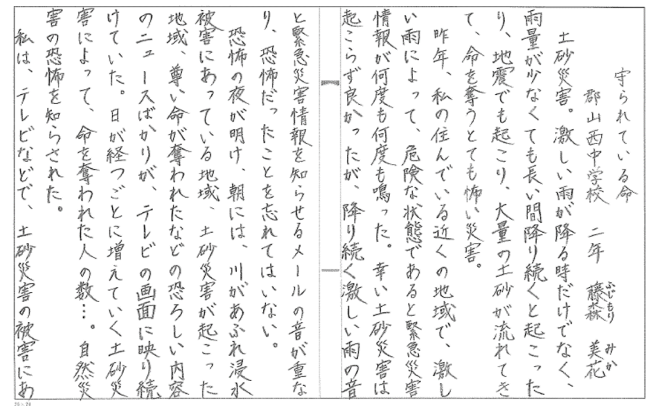 守られている命
郡山西中学校 二年 藤森 美花
ふじもり みか
土砂災害。激しい雨が降る時だけでなく、
雨量が少なくても長い間降り続くと起こった
り、地震でも起こり、大量の土砂が流れてき
て、命を奪うとても怖い災害。
昨年、私の住んでいる近くの地域で、激し
い雨によって、危険な状態であると緊急災害
情報が何度も何度も鳴った。幸い土砂災害は
起こらず良かったが、降り続く激しい雨の音
と緊急災害情報を知らせるメールの音が重な
り、恐怖だったことを忘れてはいない。
恐怖の夜が明け、朝には、川があふれ浸水
被害にあっている地域、土砂災害が起こった
地域、尊い命が奪われたなどの恐ろしい内容
のニュースばかりが、テレビの画面に映り続
けていた。日が経つごとに増えていく土砂災
害によって、命を奪われた人の数…。自然災
害の恐怖を知らされた。
私は、テレビなどで、土砂災害の被害にあ